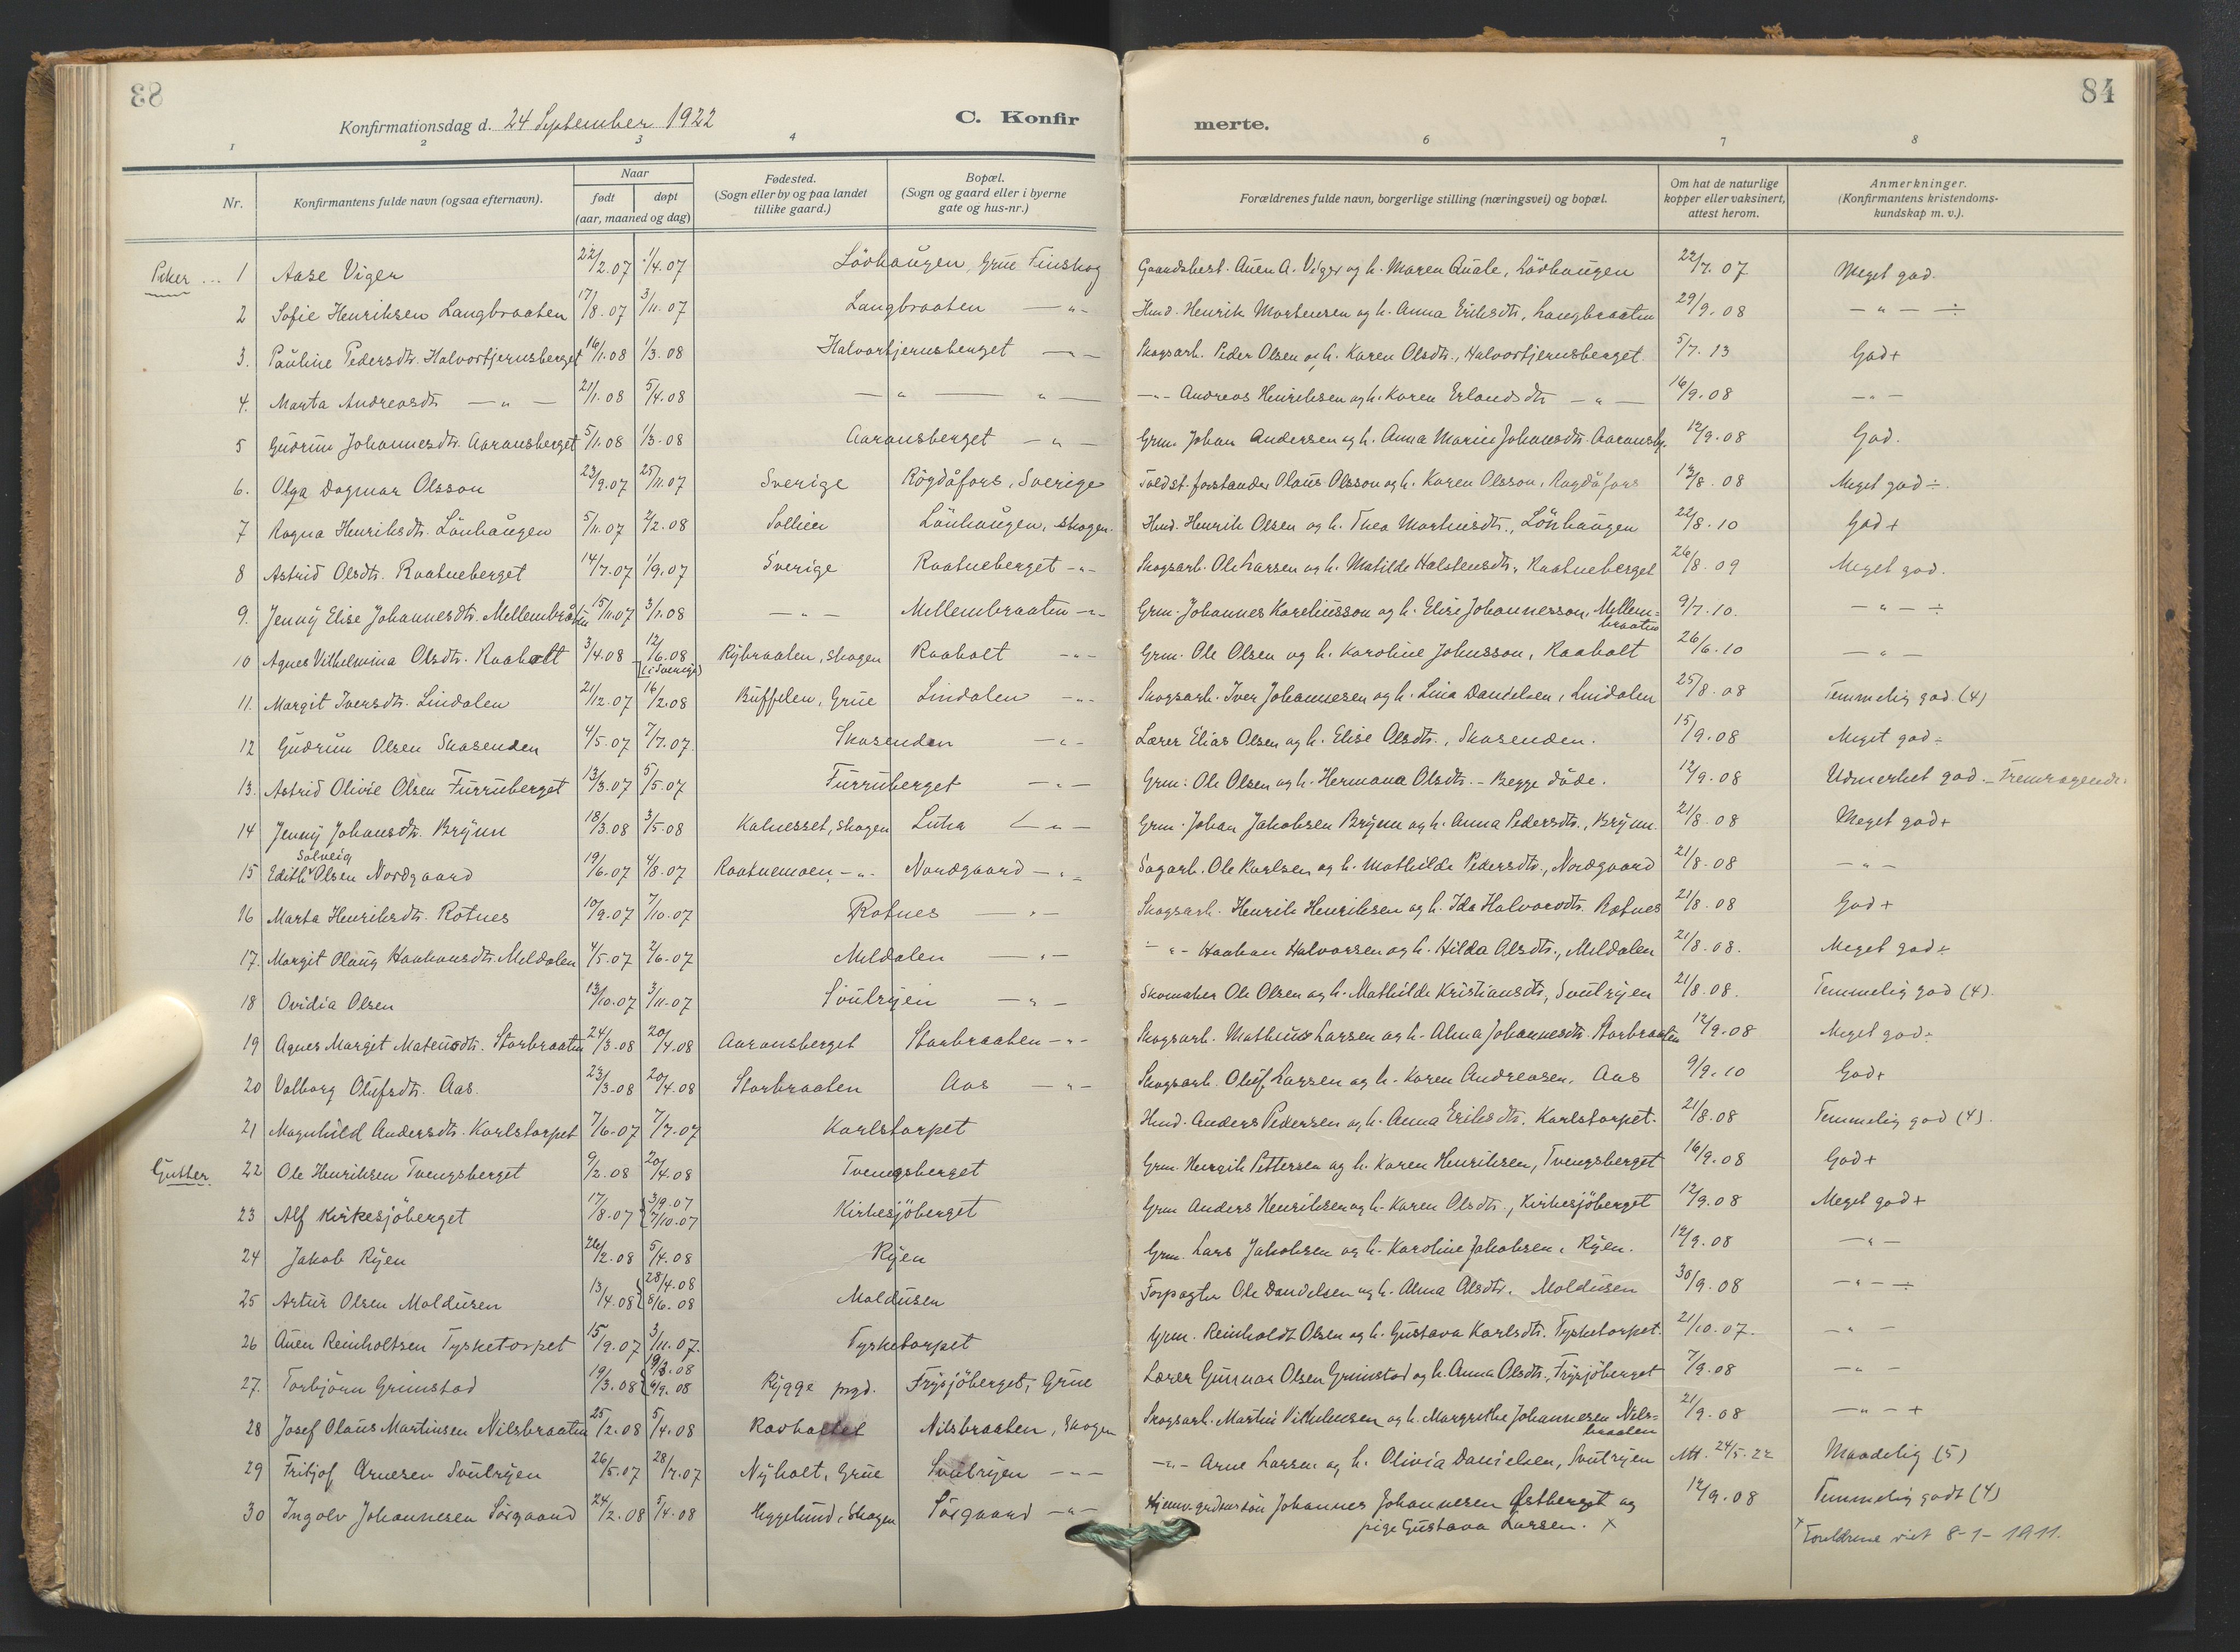 83
84
Konfirmationsdag d. 24 September 1922
C. Konfir
merte.
1 2 3 4 6 7 8
Nr.
Konfirmantens fulde navn (ogsaa efternavn).
Naar
født døpt
(aar, maaned og dag)
Fødested.
(Sogn eller by og paa landet
tillike gaard.)
Bopæl.
(Sogn og gaard eller i byerne
gate og hus-nr.)
Forældrenes fulde navn, borgerlige stilling (næringsvei) og bopæl.
Om hat de naturlige
kopper eller vaksinert,
attest herom.
Anmerkninger.
(Konfirmantens kristendoms-
kundskap m. v.).
Piker ... 1 Aase Viger 22/2.07 1/4.07 Lövhaugen, Grue Finskog Gaardsbest. Auen A. Viger og h. Maren Quale, Lövhaugen 22/7.07 Meget god.
2 Sofie Henriksen Langbraaten 17/8.07 3/11.07 Langbraaten — " - Hmd. Henrik Mortensen og h. Anna Eriksdtr, Langbraaten 29/9.08 — " — ÷
3. Pauline Pedersdtr. Halvortjernsberget 16/1.08 1/3.08 Halvortjernsberget — " — Skogsarb. Peder Olsen og h. Karen Olsdtr., Halvortjernsberget. 5/7.13 God +
4. Marta Andreasdtr — " — 21/1.08 5/4.08 — " — " — — " - Andreas Henriksen og h. Karen Erlandsdtr — " — 16/9.08 — " —
5 Gudrun Johannesdtr. Aaransberget 5/1.08 1/3.08 Aaransberget — " — Grm. Johan Andersen og h. Anna Marie Johansdtr. Aaransbg. 12/9.08 God.
6. Olga Dagmar Olsson 23/9.07 25/11.07 Sverige Rögdåfors, Sverige Toldst. forstander Olaus Olsson og h. Karen Olsson, Rogdåfors 13/8.08 Meget god ÷.
7 Ragna Henriksdtr. Lönhaugen 5/11.07 2/2.08 Sollien Lönhaugen, Skogen. Hmd. Henrik Olsen og h. Thea Martinsdtr., Lönhaugen 22/8.10 God +
8 Astrid Olsdtr. Raatneberget 14/7.07 1/9.07 Sverige Raatneberget - " - Skogsarb. Ole Larsen og h. Matilde Halstensdtr., Raatneberget 26/8.09 Meget god.
9. Jenny Elise Johannesdtr. Mellembråten 15/11.07 3/1.08 — " — Mellembraaten - " - Grm. Johannes Kareliusson og h. Elise Johannesson, Mellem=
braaten 9/7.10. — " — ÷
10 Agnes Vilhelmina Olsdtr. Raaholt 3/4.08 12/6.08 (i Sverige) Rybraaten, Skogen Raaholt - " - Grm. Ole Olsen og h. Karoline Johnsson, Raaholt 26/6.10 — " —
11. Margit Iversdtr. Lindalen 21/12.07 16/2.08 Buffelen, Grue Lindalen - " - Skogsarb. Iver Johannesen og h. Lina Danielsen, Lindalen 25/8.08 Temmelig god (4)
12 Gudrun Olsen Skasenden 4/5.07 7/7.07 Skasenden — " - Lærer Elias Olsen og h. Elise Olsdtr., Skasenden. 15/9.08 Meget god ÷
13. Astrid Olivie Olsen Furruberget 13/3.07 5/5.07 Furruberget — " — Grm: Ole Olsen og h. Hermana Olsdtr. - Begge døde. 12/9.08 Udmerket god. - Fremragende.
14 Jenny Johansdtr. Brynn 18/3.08 3/5.08 Kalnesset, Skogen Lutra — " — Grm. Johan Jakobsen Brynn og h. Anna Pedersdtr., Brynn. 21/8.08 Meget god +
15 Edith Solveig Olsen Nordgaard 19/6.07 4/8.07 Raatnemoen - " - Nordgaard — " - Sagarb. Ole Karlsen og h. Mathilde Pedersdtr., Nordgaard 21/8.08 — " —
16 Marta Henriksdtr. Rotnes 10/9.07 7/10.07 Rotnes — " — Skogsarb. Henrik Henriksen og h. Ida Halvorsdtr. Rotnes 21/8.08 God +
17. Margit Olaug Haakonsdtr. Meldalen 4/5.07 2/6.07 Meldalen — " — — " - Haakan Halvorsen og h. Hilda Olsdtr., Meldalen 21/8.08. Meget god ÷
18 Ovidia Olsen 13/10.07 3/11.07 Svulryen — " — Skomaker Ole Olsen og h. Mathilde Kristiansdtr., Svulryen 21/8.08. Temmelig god (4).
19 Agnes Marget Mateusdtr. Storbraaten 24/3.08 20/4.08 Aaransberget Storbraaten - " - Skogsarb. Matheus Larsen og h. Alma Johannesdtr. Storbraaten 12/9.08 Meget god ÷
20 Valborg Olufsdtr. Aas. 23/3.08 20/4.08 Storbraaten Aas — " - Skogsarb. Oluf Larsen og h. Karen Andreasen, Aas 9/9.10 God +
21 Magnhild Andersdtr. Karlstorpet 7/6.07 7/7.07 Karlstorpet Hmd. Anders Pedersen og h. Anna Eriksdtr. Karlstorpet. 21/8.08 Temmelig god (4).
Gutter. 22 Ole Henriksen Tvengsberget 9/2.08 20/4.08 Tvengsberget Grm. Henrik Pettersen og h. Karen Henriksen, Tvengsberget 16/9.08 God +
23 Alf Kirkesjöberget 17/8.07 {3/9.07 7/10.07 Kirkesjöberget Grm Anders Henriksen og h. Karen Olsdtr., Kirkesjöberget 12/9.08 Meget god +
24 Jakob Ryen 26/2.08 5/4.08 Ryen Grm. Lars Jakobsen og h. Karoline Jakobsen, Ryen. 12/9.08 — " —
25 Artur Olsen Moldusen 13/4.08 {28/4.08 8/6.08 Moldusen Forpagter Ole Danielsen og h. Alma Olsdtr. Moldusen 30/9.08 — " — ÷
26 Auen Reinholtsen Tysketorpet 15/9.07 3/11.07. Tysketorpet Grm. Reinholdt Olsen og h. Gustava Karlsdtr. Tysketorpet. 21/10.07. — " —
27. Torbjörn Grimstad 19/3.08 {19/3.08 6/9.08 Rygge prgd. Frysjöberget, Grue Lærer Gunnar Olsen Grimstad og h. Anna Olsdtr., Frysjöberget 7/9.08 — " —
28 Josef Olaus Martinsen Nilsbraaten 25/2.08 5/4.08 Nilsbraaten, Skogen Skogsarb. Martin Vilhelmsen og h. Margrethe Johannesen Nils=
braaten 21/9.08 — " — +
29 Fritjof Arnesen Svulryen 26/5.07 28/7.07 Nyholt, Grue Svulryen - " - — " - Arne Larsen og h. Olivia Danielsen, Svulryen Att. 24/5.22 Maadelig (5)
30 Ingolv Johannesen Sörgaard 24/2.08 5/4.08 Hyggelund, Skogen Sörgaard - " - Hjemv. grdmrsön Johannes Johannesen Östberget og
pige Gustava Larsen. × 12/9.08 Temmelig godt (4)
× Foreldrene viet 8-1-1911.